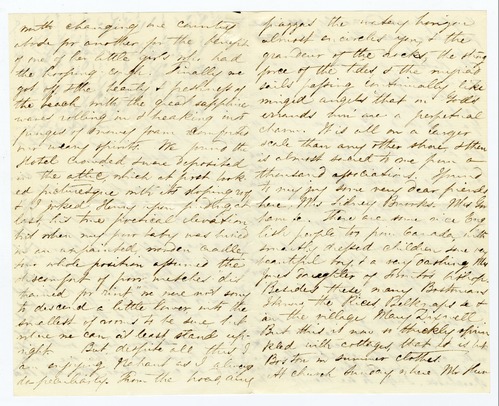 with changing one country
abode for another for the benefit
of one of her little girls who had
the hooping cough. Finally we
got off & the beauty & freshness of
the beach, with the great sapphire
waves rolling in & breaking into
fringes of snowy foam comforted
our weary spirits. We found the
Hotel crowded & were deposited
in the attic which at first look
ed picturesque with its sloping roof
& I joked Henry upon finding at
last his true poetical elevation
but when my poor baby was buried
in an unpainted, wooden
our whole position assumed the
discomfort of poor wretches
for rent we were not sorry
to descend a little lower into the
smallest of rooms to be sure but
where we can at least stand up-
right. But despite all this I
am enjoying Nahant as I always
do peculiarly. From the broad, long
piazzas the watery horizon
almost encircles you, & the
grandeur of the rocks, the strong
force of the tides & the myriad
sails passing continually like
winged angels that on God's
errands are a perpetual
charm. It is all on a larger
scale than any other shore, & then
is almost sacred to me from a
thousand associations. I found
to my joy some very dear friends
here Mrs Sidney Brooks, Mrs
There are some nice Eng
lish people too from Canada with
dressed children some very
beautiful boys & a very dashing
daughter of
Besides these, many Bostonians
I know the Rices &c &
in the village Mary
But this is now so thickly sprin
kled with cottages, that it is but
Boston in summer clothes.
At church Sunday where Mr